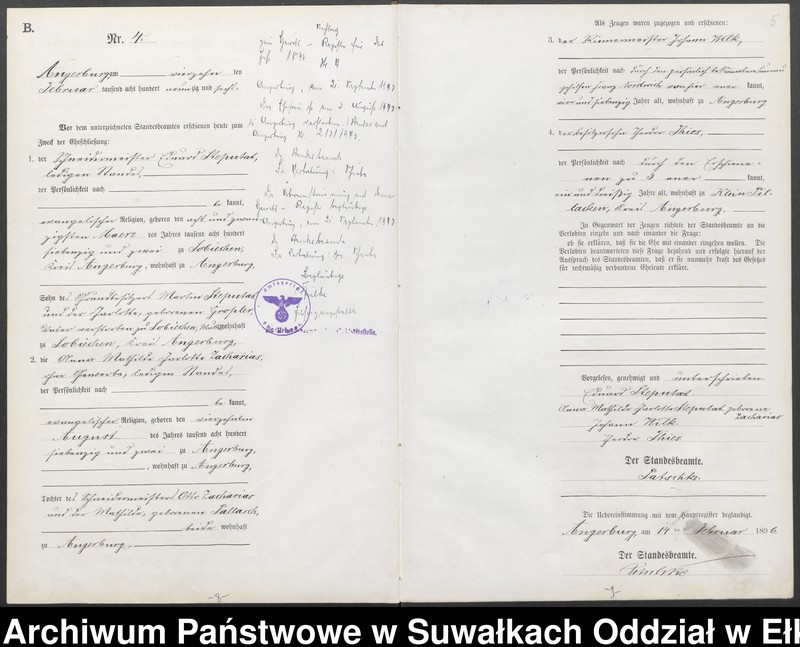 B.
Nr. 4.
Angerburg am vierzehn ten
Februar tausend acht hundert neunzig und sechs.
Vor dem unterzeichneten Standesbeamten erschienen heute zum
Zweck der Eheschließung:
1. der Schneidermeister Eduard Steputat,
ledigen Standes,
der Persönlichkeit nach
be kannt,
evangelischer Religion, geboren den acht und zwan
zigsten Maerz des Jahres tausend acht hundert
siebenzig und zwei zu Sobiechen,
Kreis Angerburg, wohnhaft zu Angerburg,
Sohn des Grundbesitzers Martin Steputat
und der Charlotte, geborenen
Vater verstorben zu Sobiechen, Mutter wohnhaft
zu Sobiechen, Kreis Angerburg,
2. die Olenna Mathilde Charlotte Zacharias,
ohne Gewerbe, ledigen Standes,
der Persönlichkeit nach
be kannt,
evangelischer Religion, geboren den vierzehnten
August des Jahres tausend acht hundert
siebenzig und zwei zu Angerburg,
, wohnhaft zu Angerburg,
Tochter des Schneidermeisters Otto Zacharias
und der Mathilde, geborenen Pallasch,
beide wohnhaft
zu Angerburg.
zum Heirats-Register für das
Jahr 1896 Nr. 4
Angerburg, am 2. September 1943
Der Ehemann ist am 2. August 1943
in Angerburg verstorben (Standesamt
Angerburg Nr.
Der Standesbeamte
In Vertretung:
Die Übereinstimmung mit dem
Heirats-Register beglaubigt
Angerburg, am 2. September 1943
Der Standesbeamte
In Vertretung
5
Als Zeugen waren zugezogen und erschienen:
3. der Riemermeister Johann Wilk,
der Persönlichkeit nach durch den persönlich bekannten
kannt,
vier und siebenzig Jahre alt, wohnhaft zu Angerburg
4. der Besitzersohn Theodor Thies,
der Persönlichkeit nach durch den Erschiene-
nen zu 3 aner kannt,
ein und dreißig Jahre alt, wohnhaft zu Klein Pil-
lacken, Kreis Angerburg.
In Gegenwart der Zeugen richtete der Standesbeamte an die
Verlobten einzeln und nach einander die Frage:
ob sie erklären, daß sie die Ehe mit einander eingehen wollen. Die
Verlobten beantworteten diese Frage bejahend und erfolgte hierauf der
Ausspruch des Standesbeamten, daß er sie nunmehr kraft des Gesetzes
für rechtmäßig verbundene Eheleute erkläre.
Vorgelesen, genehmigt und unterschrieben
Eduard Steputat
Mathilde Charlotte Steputat geborene
Zacharias
Johann Wilk
Theodor Thies
Der Standesbeamte.
Patschke.
Die Uebereinstimmung mit dem Hauptregister beglaubigt.
Angerburg, am 14ten Februar 1896
Der Standesbeamte.
Archiwum Państwowe w Suwałkach Oddział w Ełk